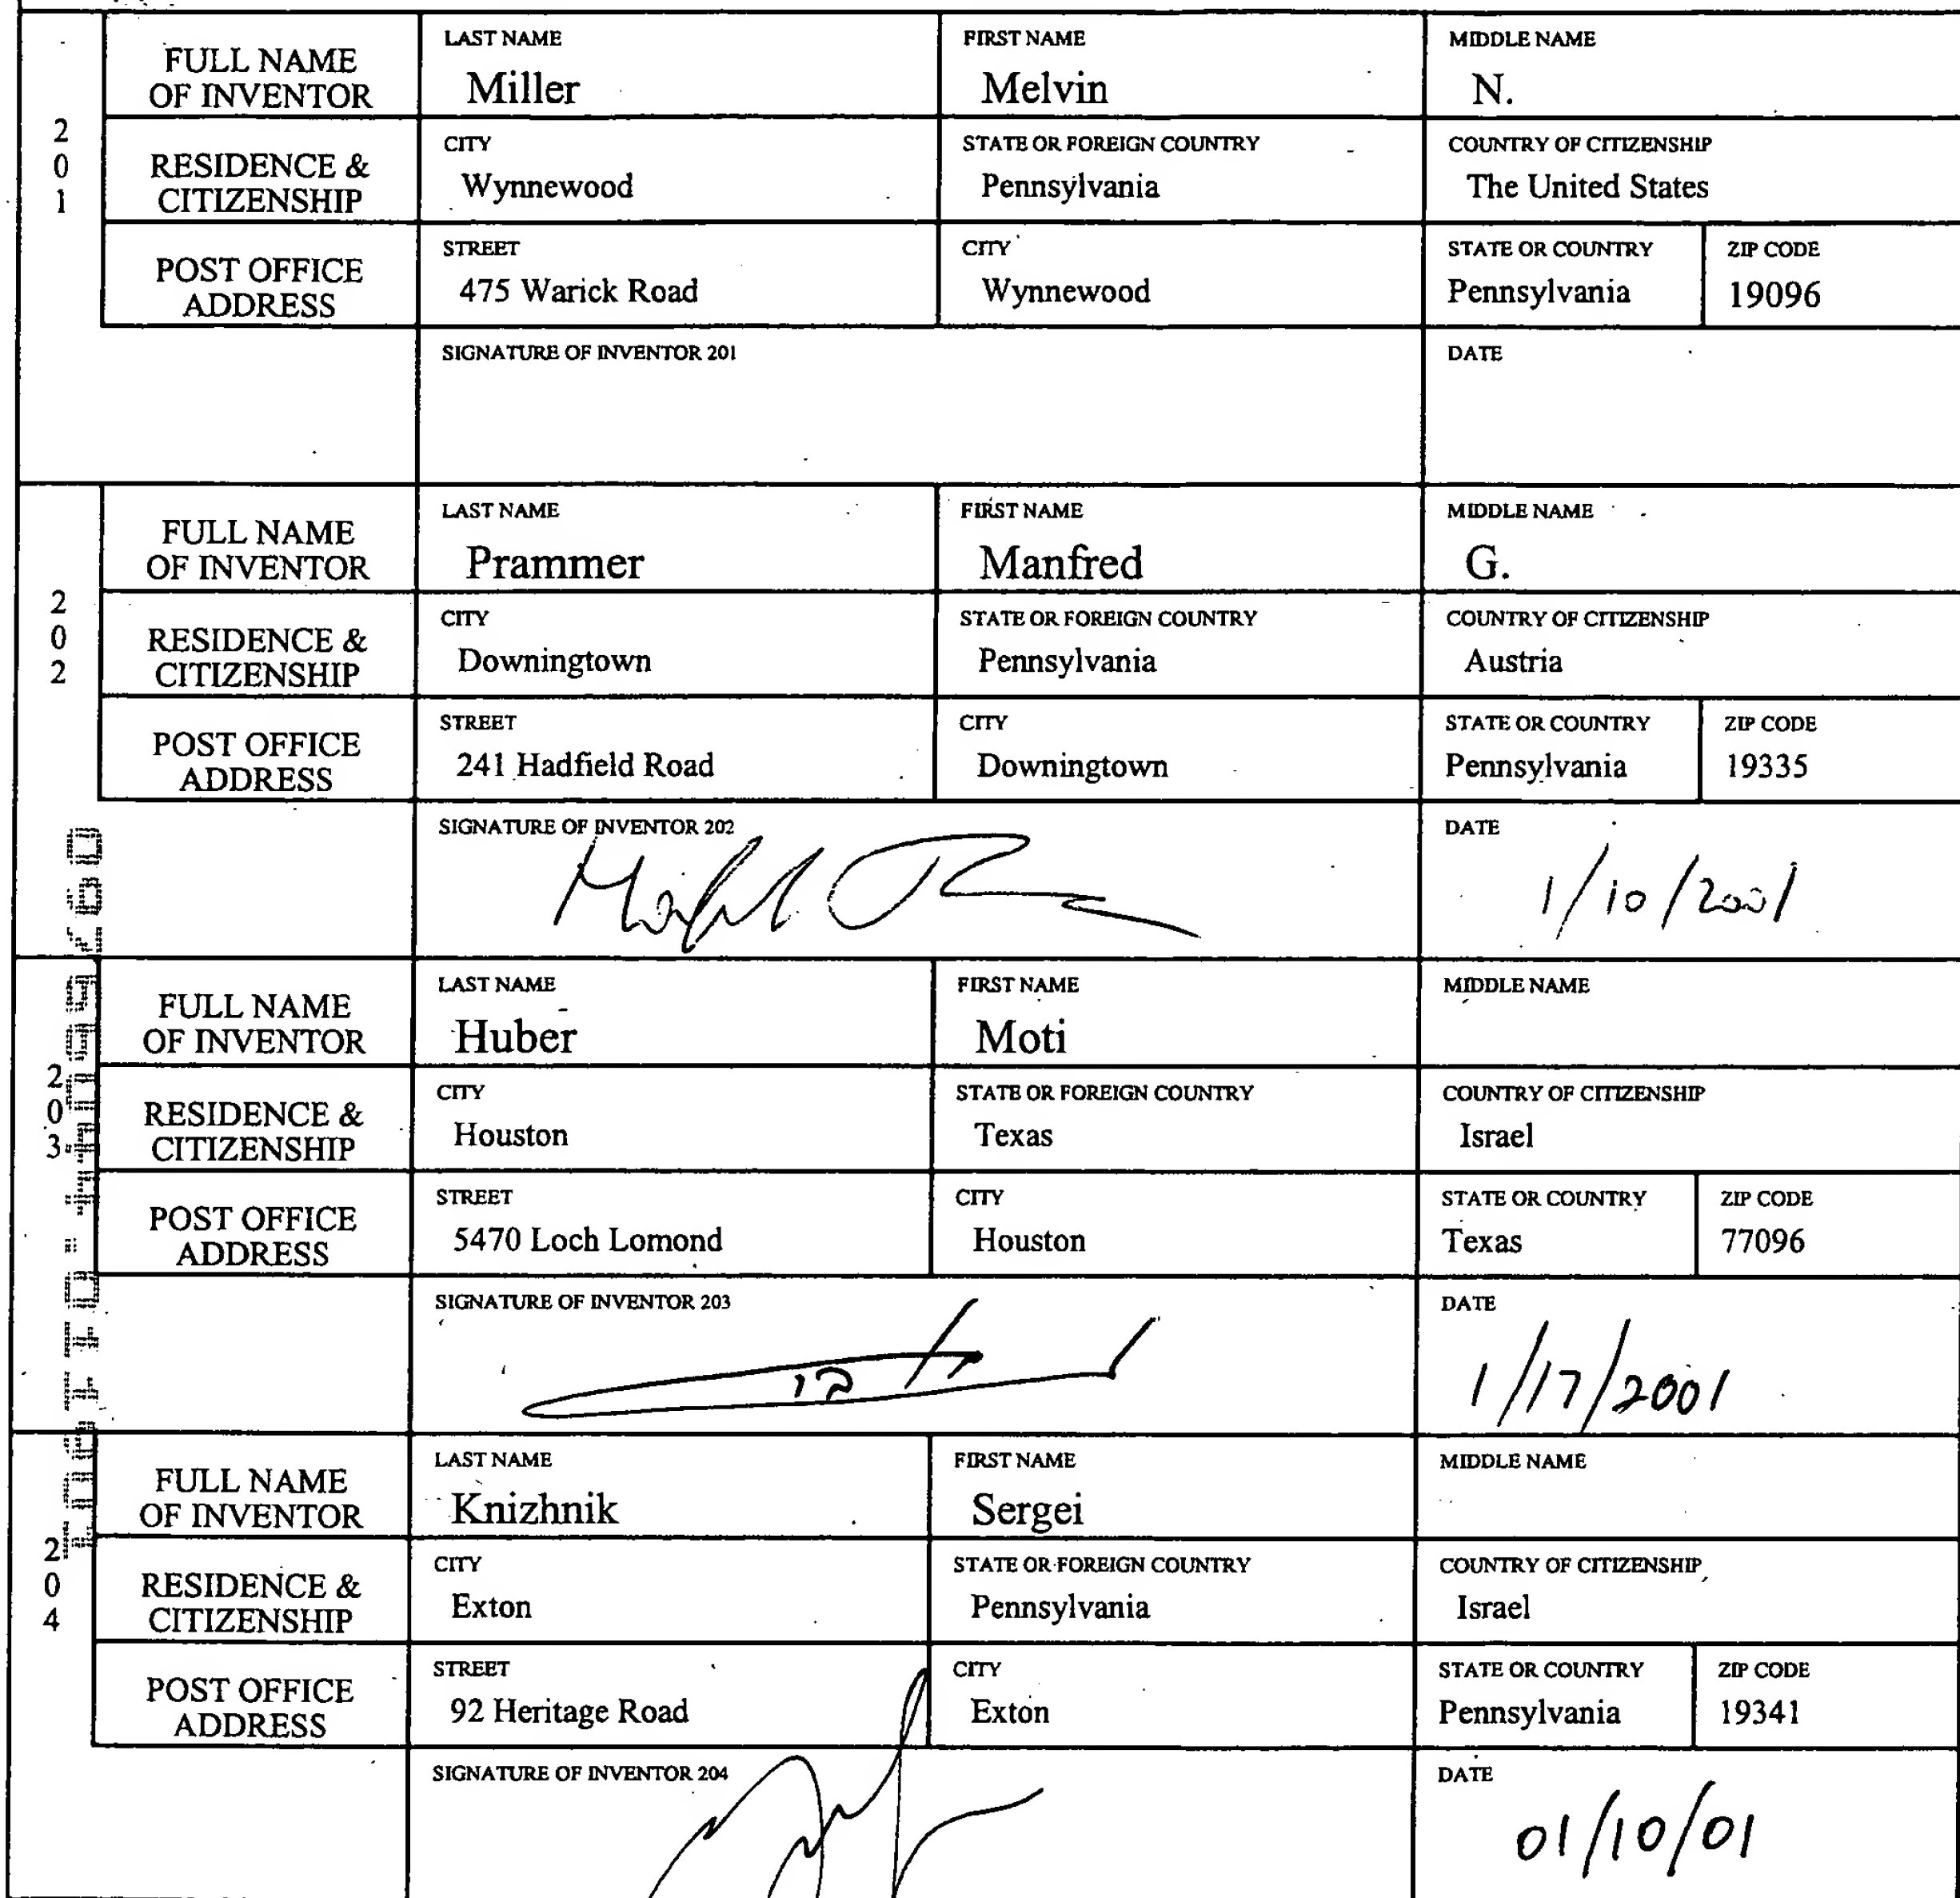 201
FULL NAME OF INVENTOR
LAST NAME Miller
FIRST NAME Melvin
MIDDLE NAME N.
RESIDENCE & CITIZENSHIP
CITY Wynnewood
STATE OR FOREIGN COUNTRY Pennsylvania
COUNTRY OF CITIZENSHIP The United States
POST OFFICE ADDRESS
STREET 475 Warick Road
CITY Wynnewood
STATE OR COUNTRY Pennsylvania
ZIP CODE 19096
SIGNATURE OF INVENTOR 201
DATE
202
FULL NAME OF INVENTOR
LAST NAME Prammer
FIRST NAME Manfred
MIDDLE NAME G.
RESIDENCE & CITIZENSHIP
CITY Downingtown
STATE OR FOREIGN COUNTRY Pennsylvania
COUNTRY OF CITIZENSHIP Austria
POST OFFICE ADDRESS
STREET 241 Hadfield Road
CITY Downingtown
STATE OR COUNTRY Pennsylvania
ZIP CODE 19335
SIGNATURE OF INVENTOR 202
DATE 1/10/2001
203
FULL NAME OF INVENTOR
LAST NAME Huber
FIRST NAME Moti
MIDDLE NAME
RESIDENCE & CITIZENSHIP
CITY Houston
STATE OR FOREIGN COUNTRY Texas
COUNTRY OF CITIZENSHIP Israel
POST OFFICE ADDRESS
STREET 5470 Loch Lomond
CITY Houston
STATE OR COUNTRY Texas
ZIP CODE 77096
SIGNATURE OF INVENTOR 203
DATE 1/17/2001
204
FULL NAME OF INVENTOR
LAST NAME Knizhnik
FIRST NAME Sergei
MIDDLE NAME
RESIDENCE & CITIZENSHIP
CITY Exton
STATE OR FOREIGN COUNTRY Pennsylvania
COUNTRY OF CITIZENSHIP Israel
POST OFFICE ADDRESS
STREET 92 Heritage Road
CITY Exton
STATE OR COUNTRY Pennsylvania
ZIP CODE 19341
SIGNATURE OF INVENTOR 204
DATE 01/10/01